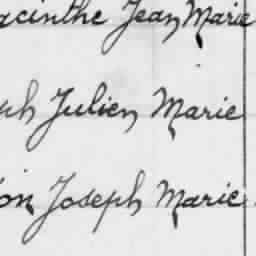 acinthe Jean Marie
ph Julien Marie
on Joseph Marie